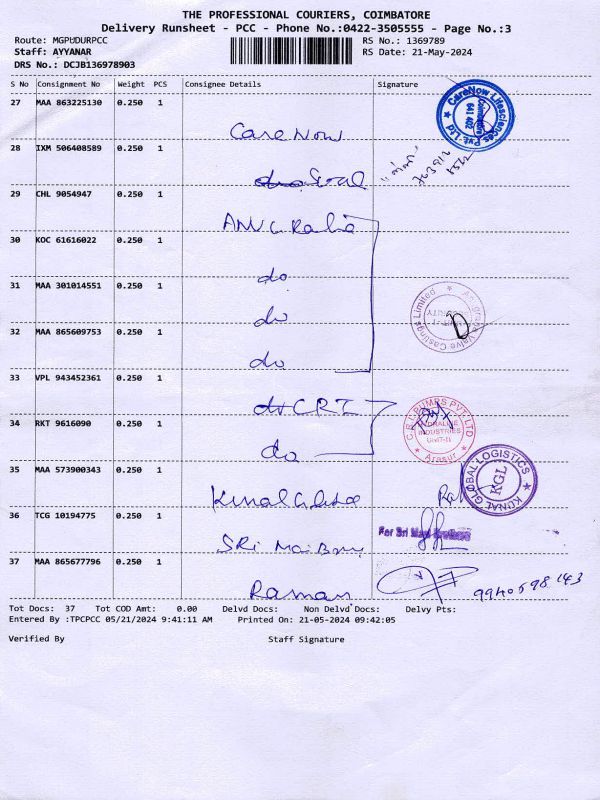 THE PROFESSIONAL COURIERS, COIMBATORE
Delivery Runsheet - PCC - Phone No.:0422-3505555 - Page No.:3
Route: MGPUDURPCC RS No.: 1369789
Staff: AYYANAR RS Date: 21-May-2024
DRS No.: DCJB136978903
S No Consignment No Weight PCS Consignee Details Signature
27 MAA 863225130 0.250 1
CareNow
CareNow Lifesciences Pvt. Ltd
Coimbatore
641 402
28 IXM 506408589 0.250 1
29 CHL 9054947 0.250 1
30 KOC 61616022 0.250 1
do
31 MAA 301014551 0.250 1
do
32 MAA 865609753 0.250 1
do
Valve Castings Limited
D
33 VPL 943452361 0.250 1
do CRI
34 RKT 9616090 0.250 1
do
C.R.I. PUMPS PVT. LTD
INDUSTRIES
Unit-II
Arasur
35 MAA 573900343 0.250 1
KUNAL GLOBAL LOGISTICS
KGL
36 TCG 10194775 0.250 1
SRi
For Sri
37 MAA 865677796 0.250 1
Raman
9940598143
Tot Docs: 37 Tot COD Amt: 0.00 Delvd Docs: Non Delvd Docs: Delvy Pts:
Entered By :TPCPCC 05/21/2024 9:41:11 AM Printed On: 21-05-2024 09:42:05
Verified By Staff Signature